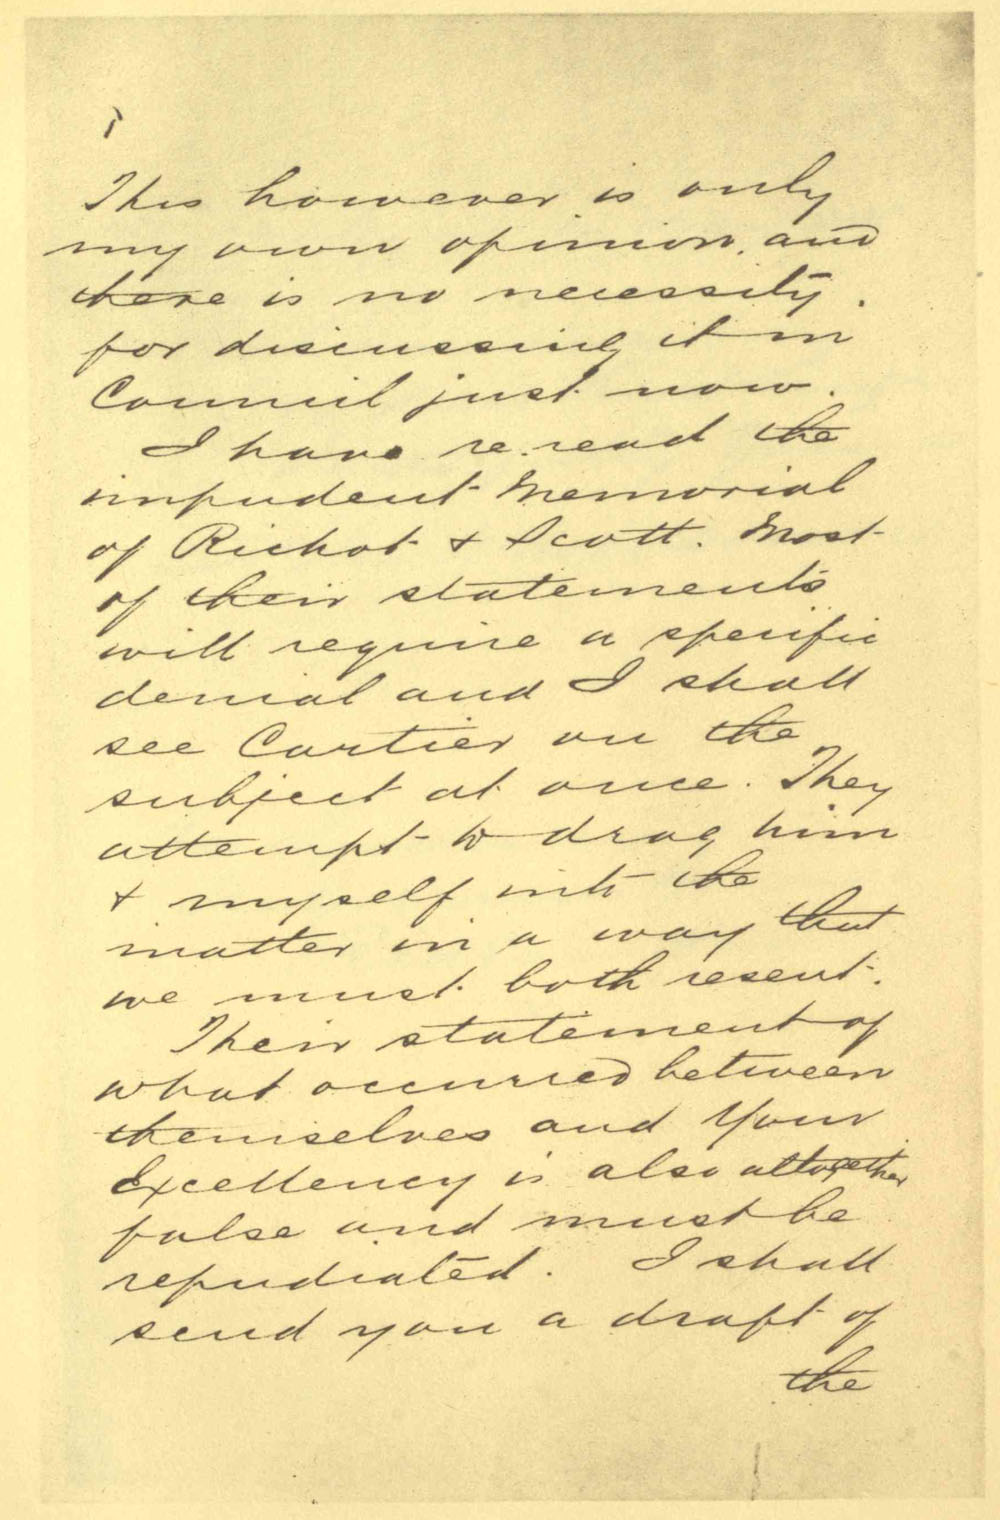 This however is only
my own opinion, and
there is no necessity.
for discussing it in
Council just now.
I have re-read the
impudent Memorial
of Richot & Scott. Most
of their statements
will require a specific
denial and I shall
see Cartier on the
subject at once. They
attempt to drag him
& myself into the
matter in a way that
we must both resent.
Their statement of
what occurred between
themselves and Your
Excellency is also altogether
false and must be
repudiated. I shall
send you a draft of
the